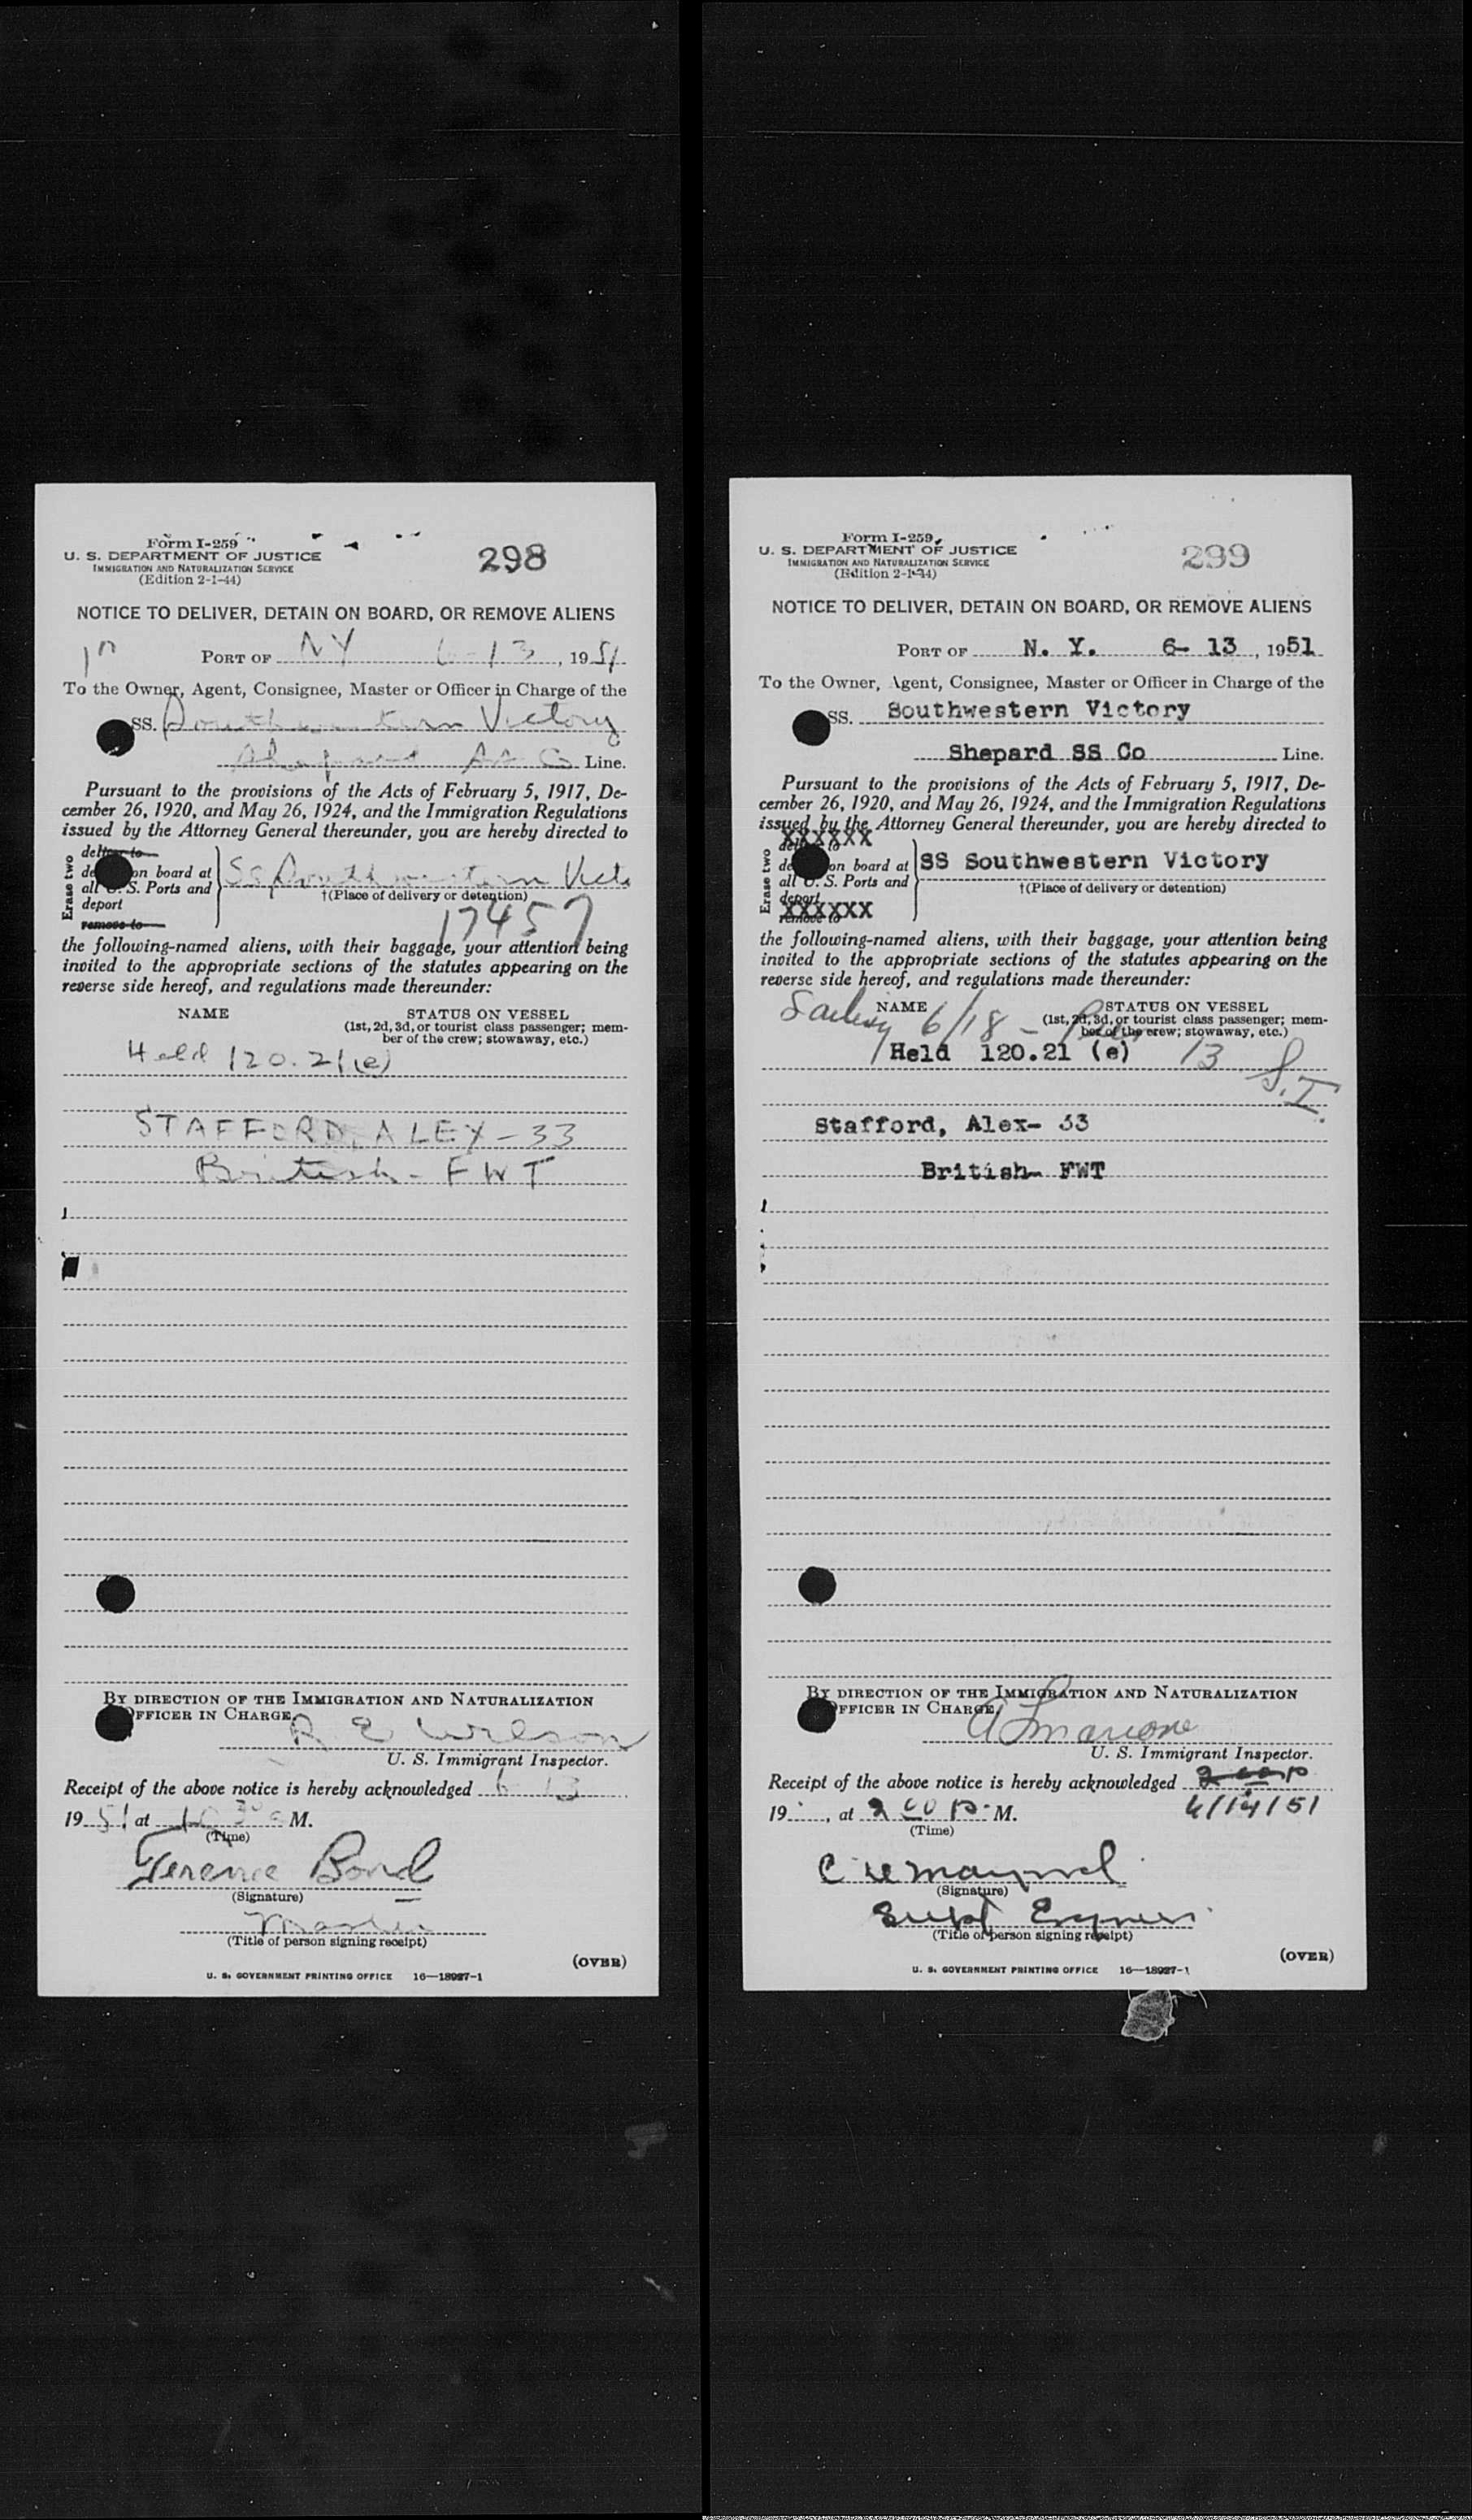 Form I-259
U. S. DEPARTMENT OF JUSTICE
IMMIGRATION AND NATURALIZATION SERVICE
(Edition 2-1-44)
298
NOTICE TO DELIVER, DETAIN ON BOARD, OR REMOVE ALIENS
PORT OF NY 6-13, 1951
To the Owner, Agent, Consignee, Master or Officer in Charge of the
SS. Southwestern Victory
Shepard SS Co Line.
Pursuant to the provisions of the Acts of February 5, 1917, De-
cember 26, 1920, and May 26, 1924, and the Immigration Regulations
issued by the Attorney General thereunder, you are hereby directed to
Erase two
deliver to
on board at
all U. S. Ports and
deport
remove to
SS Southwestern Vict
†(Place of delivery or detention)
17457
the following-named aliens, with their baggage, your attention being
invited to the appropriate sections of the statutes appearing on the
reverse side hereof, and regulations made thereunder:
NAME STATUS ON VESSEL
(1st, 2d, 3d, or tourist class passenger; mem-
ber of the crew; stowaway, etc.)
Held 120.21(e)
STAFFORD, ALEX-33
British- FWT
BY DIRECTION OF THE IMMIGRATION AND NATURALIZATION
OFFICER IN CHARGE,
R E Wilson
U. S. Immigrant Inspector.
Receipt of the above notice is hereby acknowledged 6 13
1951 at 10 30 a M.
(Time)
Terence Bond
(Signature)
Master
(Title of person signing receipt)
(OVER)
U. S. GOVERNMENT PRINTING OFFICE 16—18927-1
Form I-259
U. S. DEPARTMENT OF JUSTICE
IMMIGRATION AND NATURALIZATION SERVICE
(Edition 2-1-44)
299
NOTICE TO DELIVER, DETAIN ON BOARD, OR REMOVE ALIENS
PORT OF N. Y. 6- 13, 1951
To the Owner, Agent, Consignee, Master or Officer in Charge of the
SS. Southwestern Victory
Shepard SS Co Line.
Pursuant to the provisions of the Acts of February 5, 1917, De-
cember 26, 1920, and May 26, 1924, and the Immigration Regulations
issued by the Attorney General thereunder, you are hereby directed to
Erase two
XXXXXX
on board at
all U. S. Ports and
deport
XXXXXX
remove to
SS Southwestern Victory
†(Place of delivery or detention)
the following-named aliens, with their baggage, your attention being
invited to the appropriate sections of the statutes appearing on the
reverse side hereof, and regulations made thereunder:
NAME STATUS ON VESSEL
(1st, 2d, 3d, or tourist class passenger; mem-
ber of the crew; stowaway, etc.)
Sailing 6/18 -
Held 120.21 (e) 13 S.I.
Stafford, Alex- 33
British- FWT
BY DIRECTION OF THE IMMIGRATION AND NATURALIZATION
OFFICER IN CHARGE,
U. S. Immigrant Inspector.
Receipt of the above notice is hereby acknowledged 2 00 P
19 , at 2 00 P. M. 6/14/51
(Time)
(Signature)
Supt Engineer
(Title of person signing receipt)
(OVER)
U. S. GOVERNMENT PRINTING OFFICE 16—18927-1